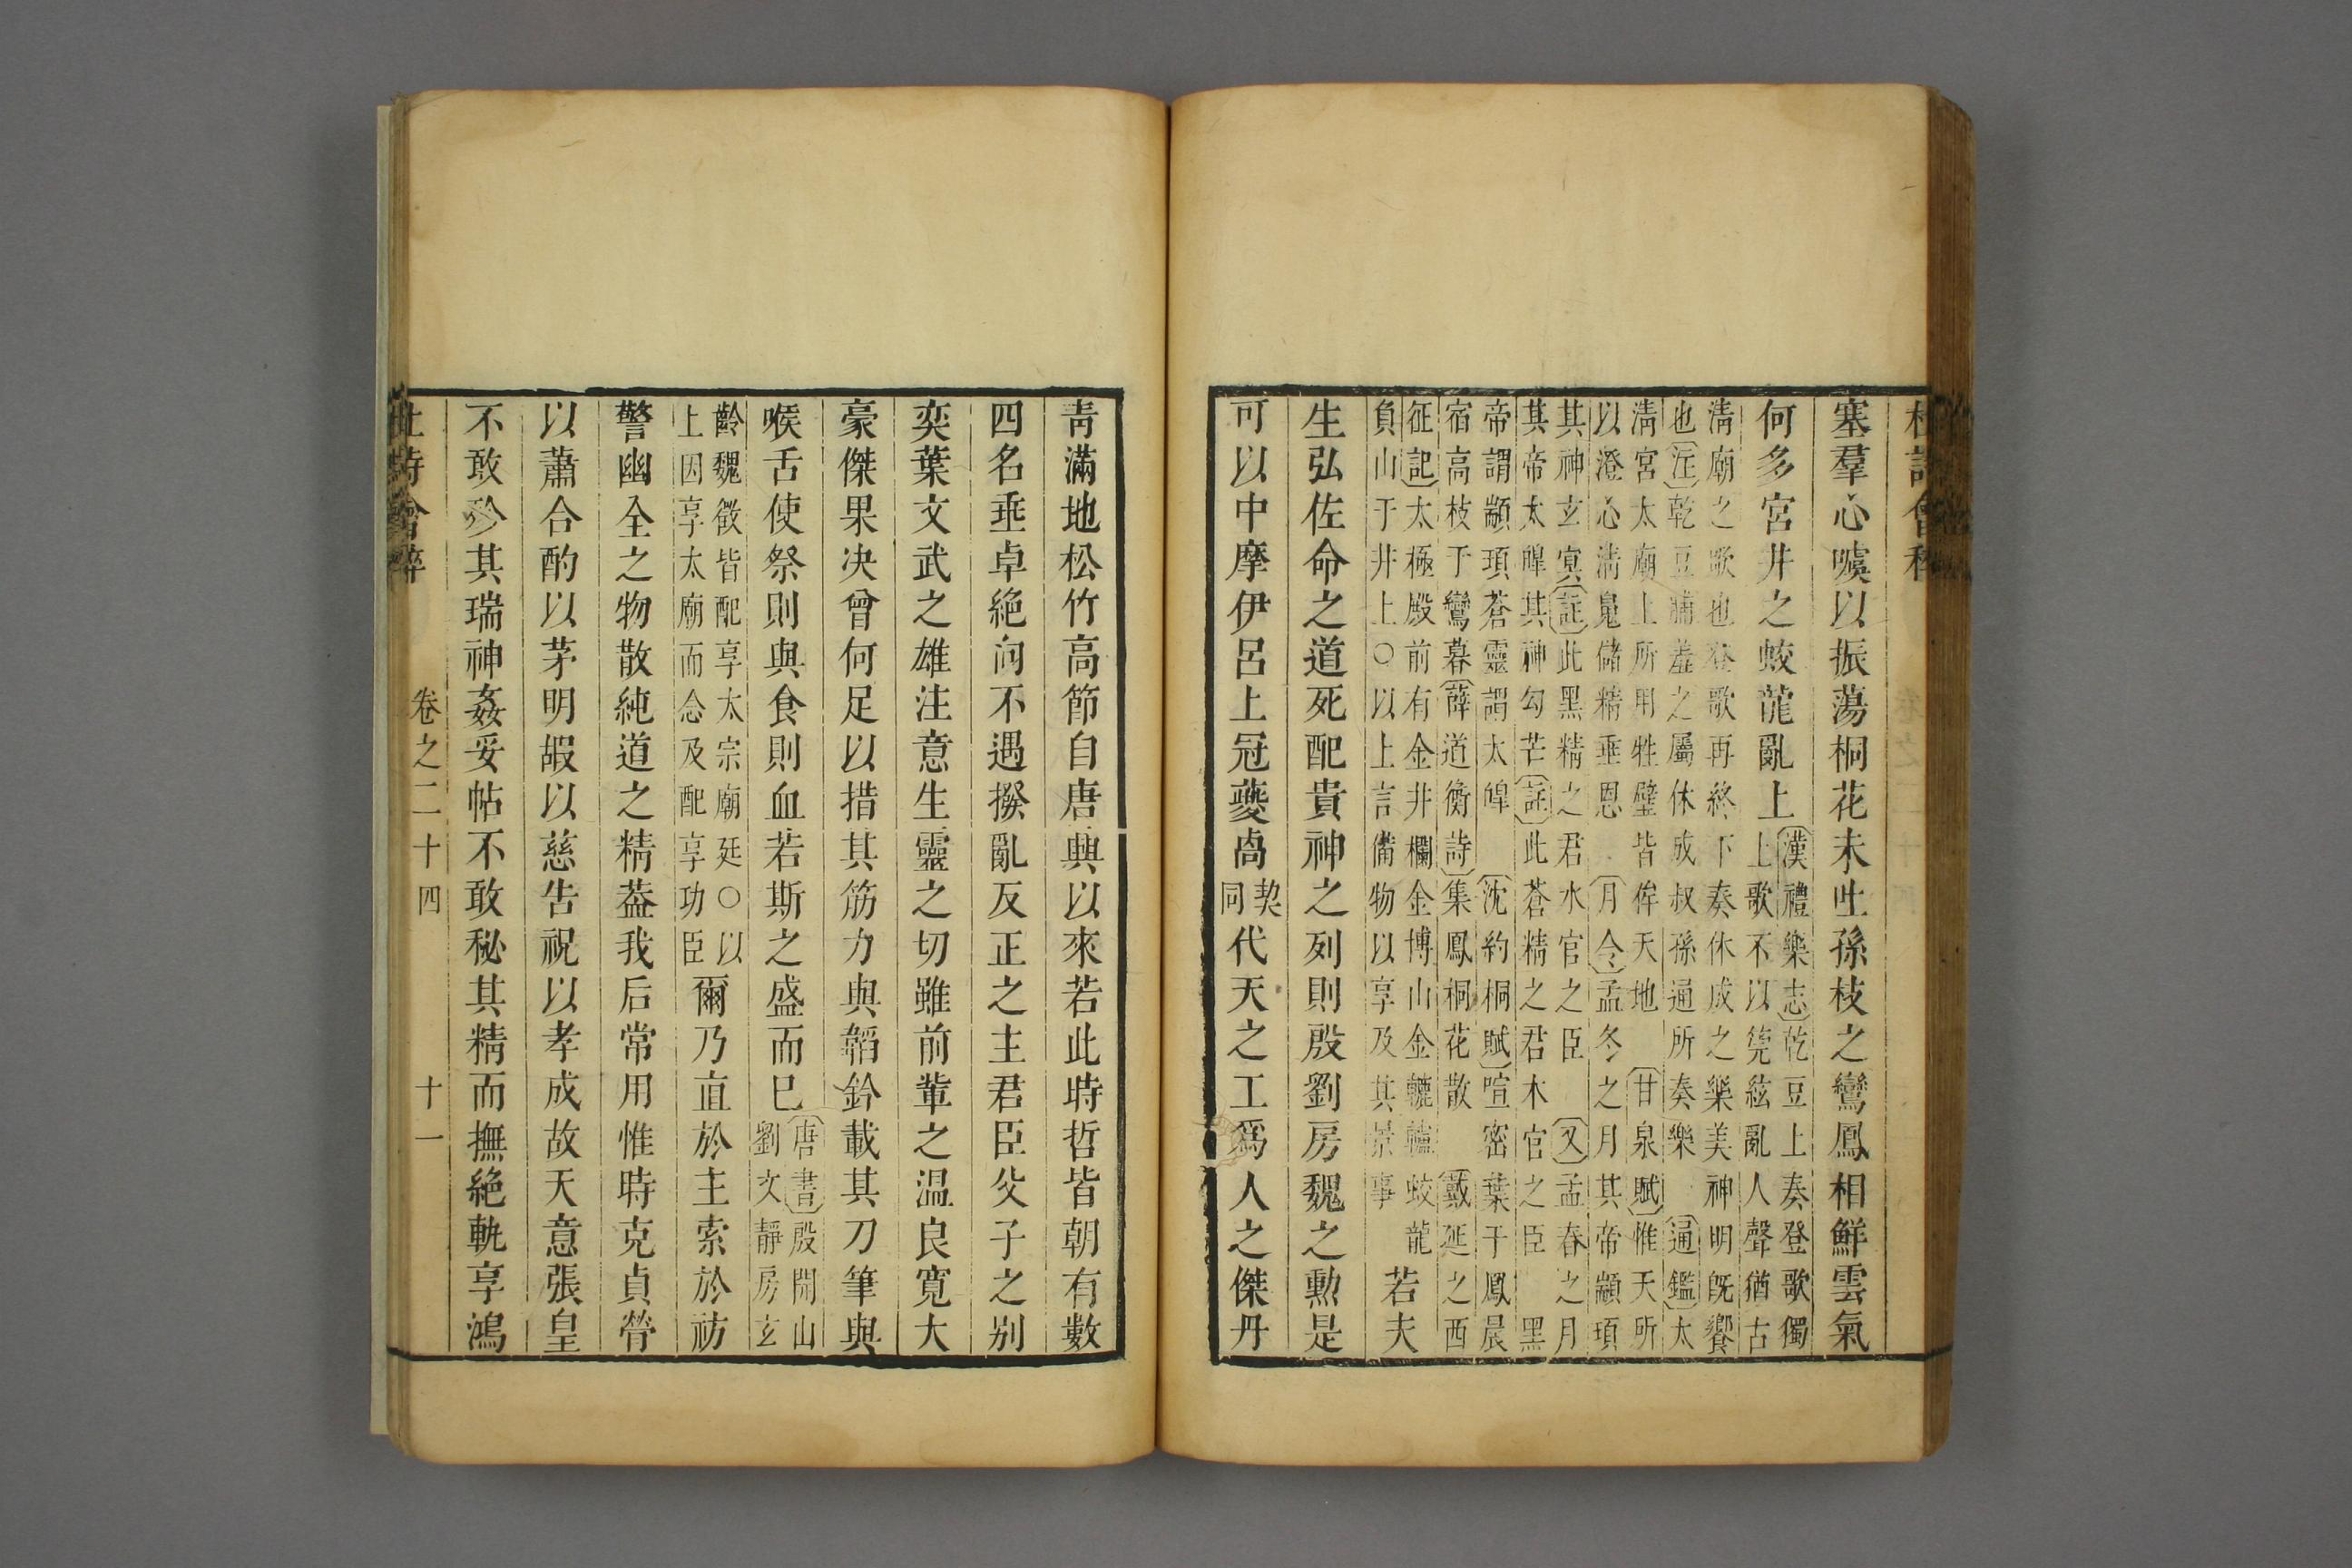 塞羣心噓以振蕩桐花未吐孫枝之鸞鳳相鮮雲氣
何多宮井之蛟龍亂上
漢禮樂志乾豆上奏登歌獨
上歌不以筦絃亂人聲猶古
淸廟之歌也登歌再終下奏休成之樂美神明旣饗
也注乾豆脯羞之屬休成叔孫通所奏樂 通鑑太
淸宮太廟上所用牲璧皆侔天地 甘泉賦惟天所
以澄心淸䰟儲精垂恩 月令孟冬之月其帝顓頊
其神玄㝠註此黑精之君水官之臣 又孟春之月
其帝太皥其神勾芒註此蒼精之君木官之臣 黑
帝謂顓頊蒼靈謂太皥 沈約桐賦喧密葉于鳳晨
宿高枝于鸞暮薛道衡詩集鳳桐花散 戴延之西
征記太極殿前有金井欄金博山金轆轤蛟龍
負山于井上○以上言備物以享及其景事
若夫
生弘佐命之道死配貴神之列則殷劉房魏之勲是
可以中摩伊呂上冠夔卨
契
同
代天之工爲人之傑丹
靑滿地松竹高節自唐興以來若此時哲皆朝有數
四名垂卓絕向不遇撥亂反正之主君臣父子之别
奕葉文武之雄注意生靈之切雖前輩之温良寛大
豪傑果决曾何足以措其筋力與韜鈐載其刀筆與
喉舌使祭則與食則血若斯之盛而已
唐書殷開山
劉文靜房玄
齡魏徵皆配享太宗廟廷○以
上因享太廟而念及配享功臣
爾乃直於主索於祊
警幽全之物散純道之精葢我后常用惟時克貞膋
以蕭合酌以茅明嘏以慈告祝以孝成故天意張皇
不敢殄其瑞神姦妥帖不敢秘其精而撫絕軌享鴻
卷之二十四
十一